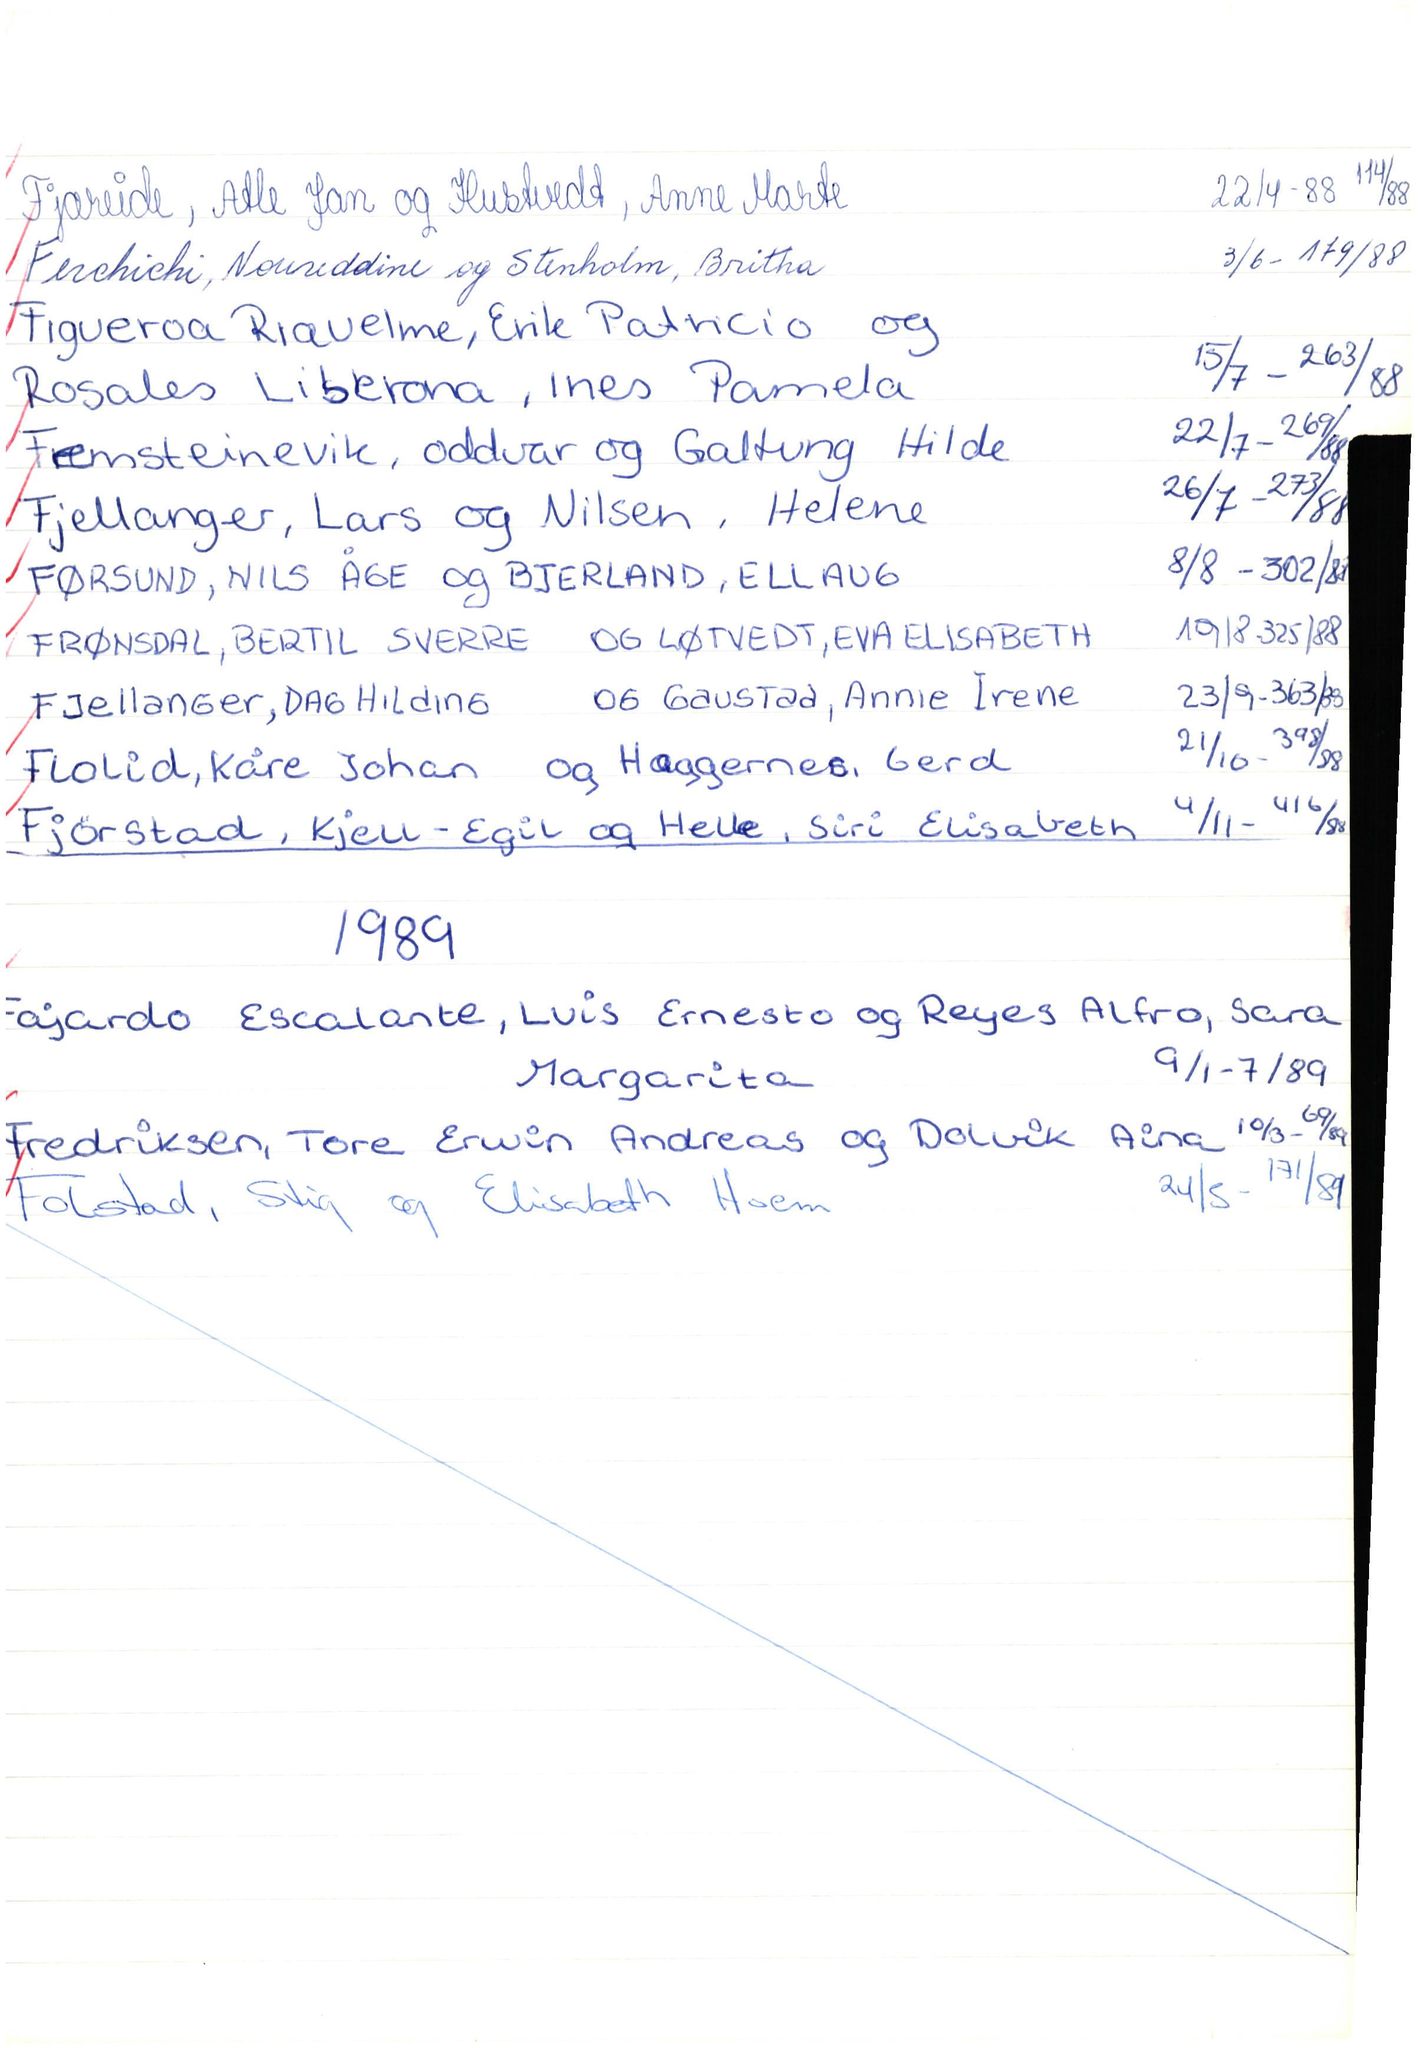 Fjæreide, Atle Jan og Hustvedt, Anne Marte 22/4-88 114/88
Ferchichi, Noureddine og Stenholm, Britha 3/6- 179/88
Figueroa Riquelme, Erik Patricio og
Rosales Liberona, Ines Pamela 15/7 - 263/88
Femsteinevik, oddvar og Galtung Hilde 22/7 - 269/88
Fjellanger, Lars og Nilsen, Helene 26/7 - 273/88
FØRSUND, NILS ÅGE og BJERLAND, ELLAUG 8/8 - 302/88
FRØNSDAL, BERTIL SVERRE OG LØTVEDT, EVA ELISABETH 19/8-325/88
FJellanGer, DAG HiLdinG OG GauSTad, Annie Irene 23/9-363/88
Flolid, Kåre Johan og Haggernes, Gerd 21/10 - 398/88
Fjørstad, Kjell-Egil og Helle, Siri Elisabeth 4/11- 416/88
1989
Fajardo Escalante, Luis Ernesto og Reyes Alfro, Sara
Margarita 9/1-7/89
Fredriksen, Tore Erwin Andreas og Dolvik Aina 10/3-69/89
Folstad, Stig og Elisabeth Hoem 24/5 - 171/89